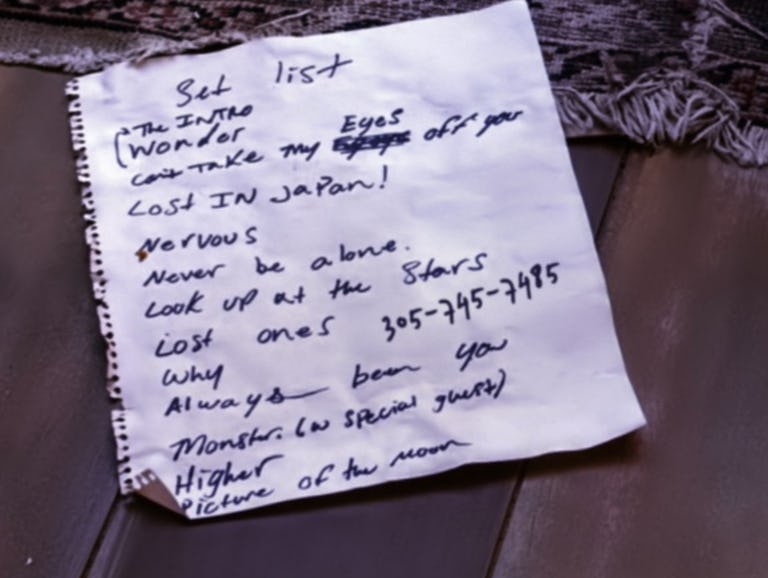 Set list
The INTRO
(Wonder
can't Take my Eyes off you
Lost IN Japan!
Nervous
Never be alone.
Look up at the Stars
Lost ones 305-745-7485
Why
Always been you
Monster. (w special guest)
Higher
Picture of the moon